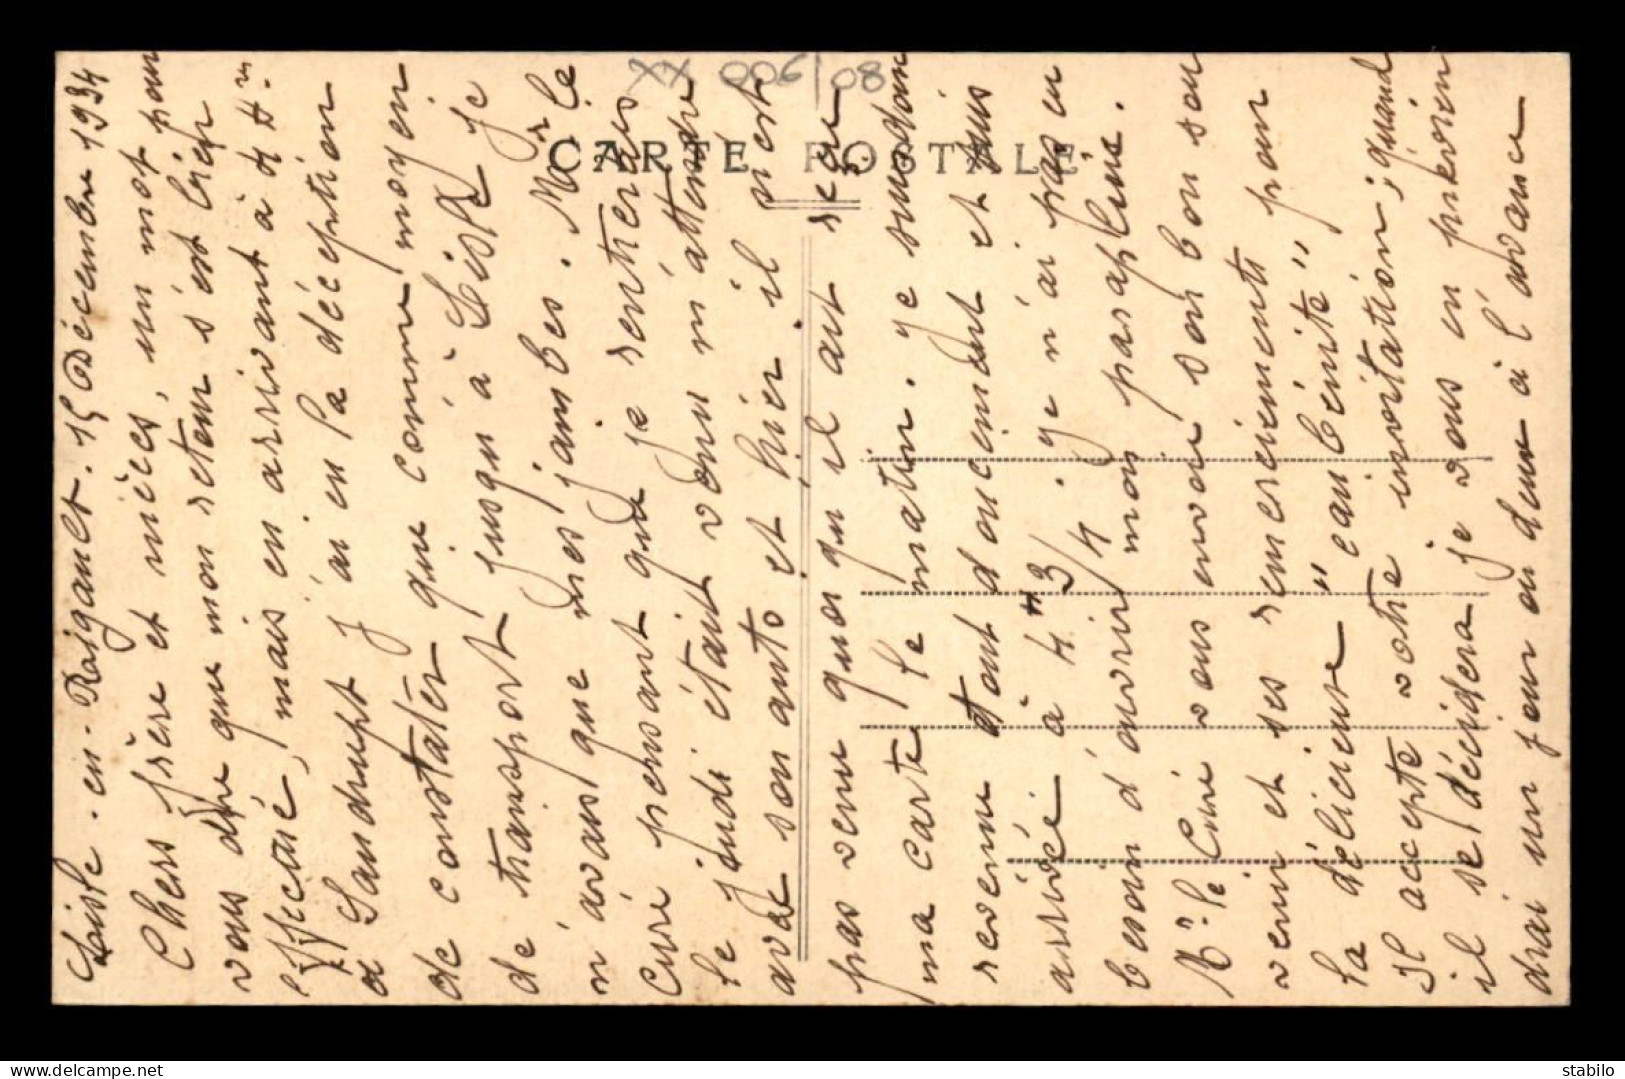 XX 006/08
CARTE POSTALE
Liste-en-Rigault. 15 Décembre 1934
Chers frère et nièces, un mot pour
vous dire que mon retour s'est bien
effectué, mais en arrivant à 4 Hres
à Saudrupt j'ai eu la déception
de constater que comme moyen
de transport jusqu'à Lisle je
n'avais que mes jambes. Mr le
Curé pensant que je rentrerais
le jeudi était venu m'attendre
avec son auto et hier il n'est
pas venu quoi qu'il ait reçu
ma carte le matin. Je suis donc
revenu tout doucement et suis
arrivé à 4H 3/4. Je n'ai pas eu
besoin d'ouvrir mon parapluie.
Mr le Curé vous envoie son bon sou
venir et ses remerciements pour
la délicieuse "eau bénite"
Il accepte votre invitation, quand
il se décidera je vous en prévien
drai un jour ou deux à l'avance